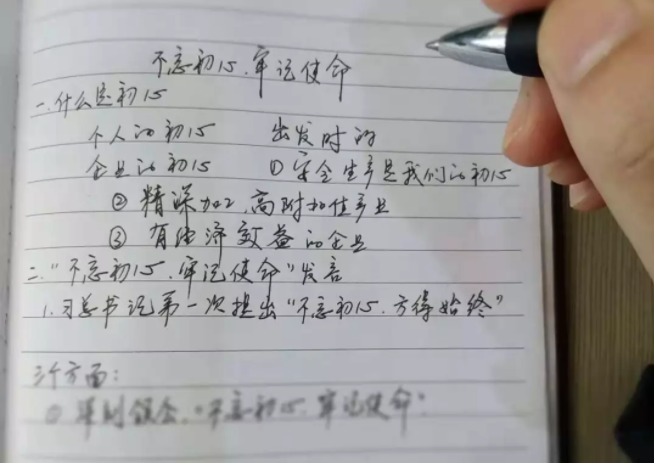 不忘初心、牢记使命
一、什么是初心
个人的初心 出发时的
企业的初心 ①安全生产是我们的初心
②精深加工、高附加值产业
③有经济效益的企业
二、"不忘初心、牢记使命"发言
1.习总书记第一次提出"不忘初心、方得始终"
三个方面：
① 深刻领会、"不忘初心、牢记使命"